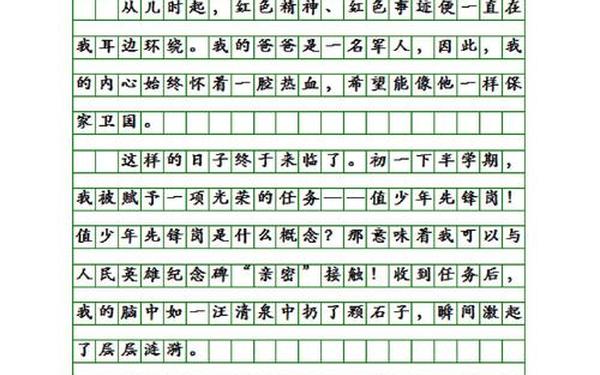 从儿时起，红色精神、红色事迹便一直在
我耳边环绕。我的爸爸是一名军人，因此，我
的内心始终怀着一腔热血，希望能像他一样保
家卫国。
这样的日子终于来临了。初一下半学期，
我被赋予一项光荣的任务——值少年先锋岗！
值少年先锋岗是什么概念？那意味着我可以与
人民英雄纪念碑“亲密”接触！收到任务后，
我的脑中如一汪清泉中扔了颗石子，瞬间激起
了层层涟漪。